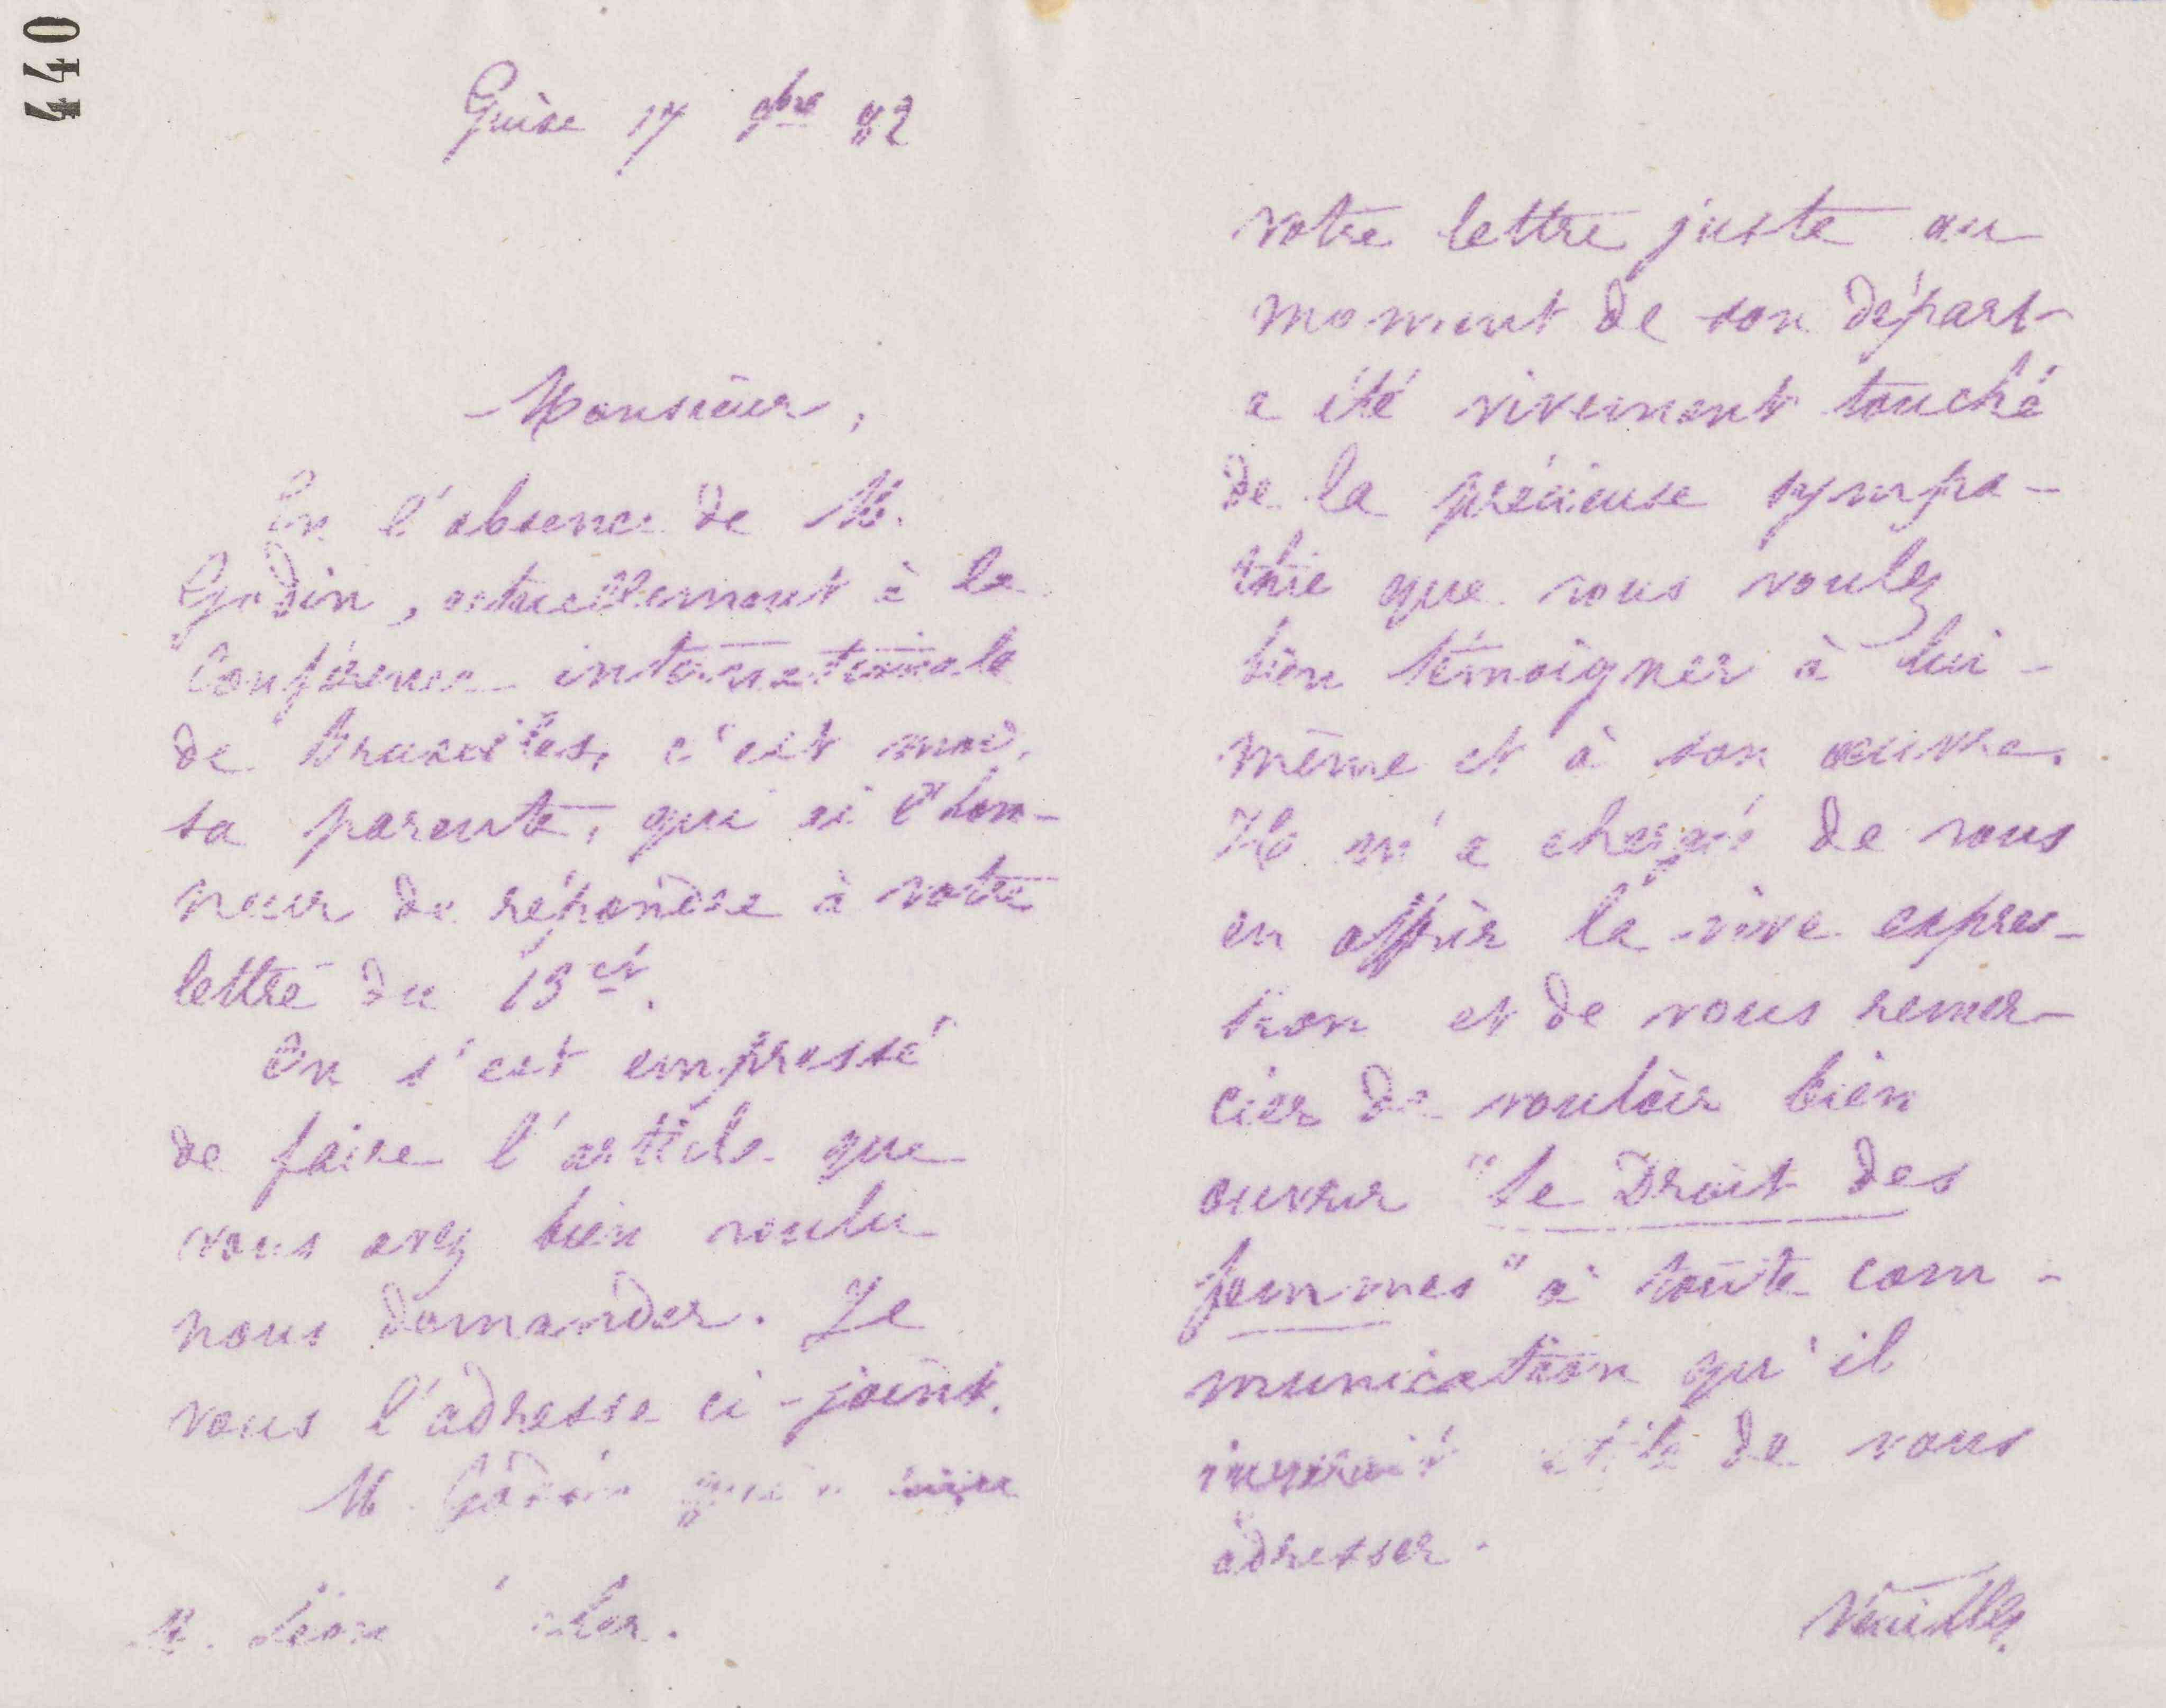 440
Guise 17 9bre 82
Monsieur,
En l'absence de M.
Godin, actuellement à la
Conférence internationale
de Bruxelles, c'est moi,
sa parente, qui ai l'hon-
neur de répondre à votre
lettre du 13 ct.
On s'est empressé
de faire l'article que
vous avez bien voulu
nous demander. Je
vous l'adresse ci-joint.
M. Godin qui a
M. Léon
votre lettre juste au
moment de son départ
a été vivement touché
de la précieuse sympa-
thie que vous voulez
bien témoigner à lui-
même et à son œuvre.
Il m'a chargé de vous
en offrir la vive expres-
sion et de vous remer-
cier de vouloir bien
ouvrir "le Droit des
femmes" à toute com-
munication qu'il
utile de vous
adresser.
Veuillez